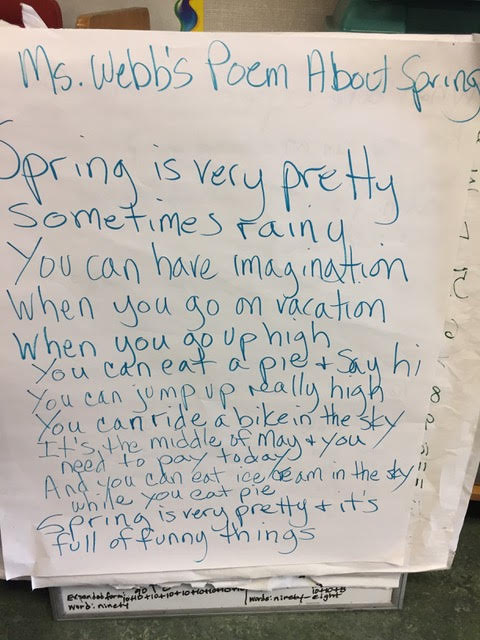 Ms. Webb's Poem About Spring
Spring is very pretty
Sometimes rainy
You can have imagination
When you go on vacation
When you go up high
You can eat a pie + say hi
You can jump up really high
You can ride a bike in the sky
It's the middle of May + you
need to pay today
And you can eat ice cream in the sky
while you eat pie
Spring is very pretty + it's
full of funny things
Expanded form:
word: ninety
words: ninety-eight